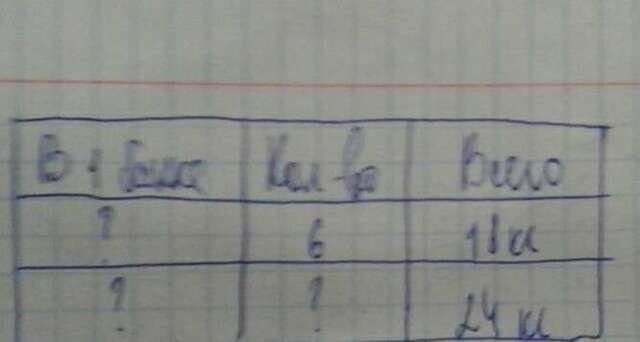 В 1 банке Кол-во Всего
? 6 18 кг
? ? 24 кг